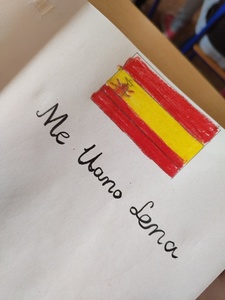 Me Uamo Lena